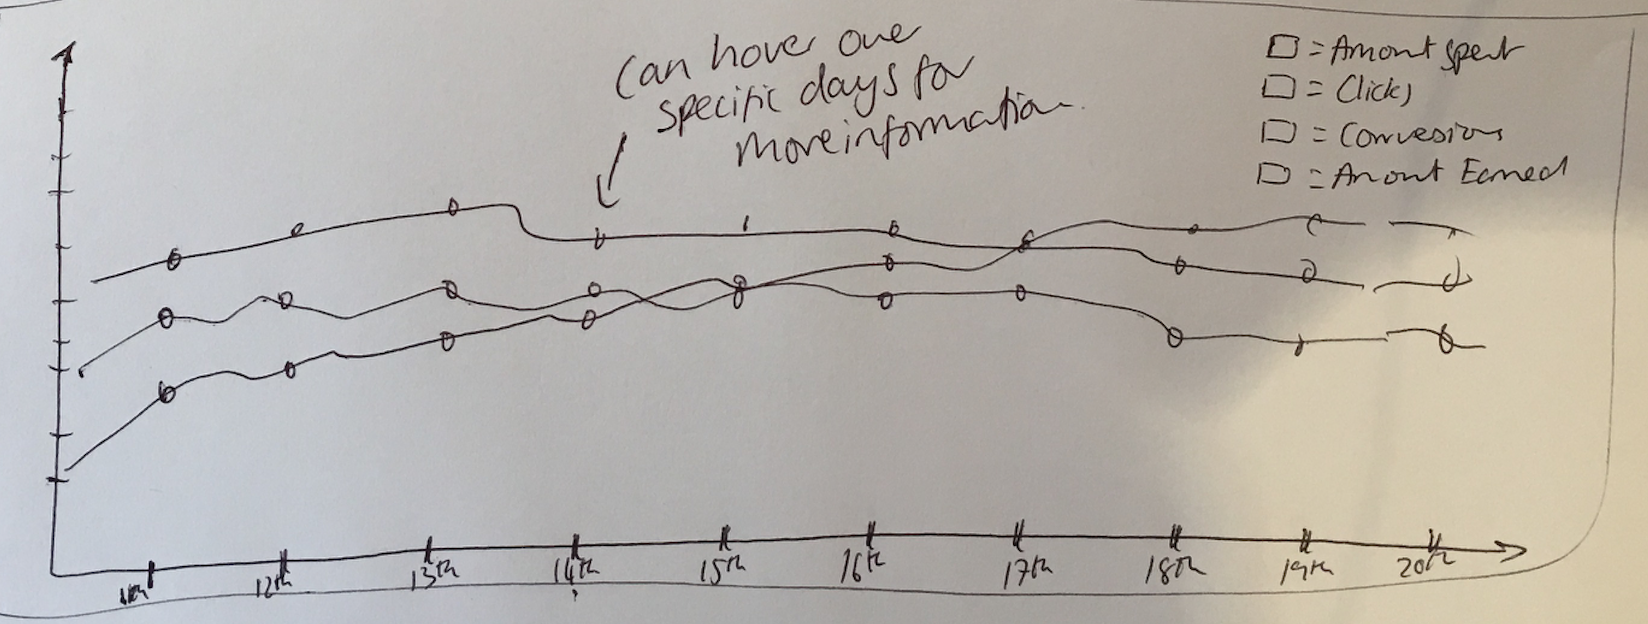 Can hover over
specific days for
more information.
☐ = Amont spent
☐ = Clicks
☐ = Convesions
☐ = Amount Earned
11th 12th 13th 14th 15th 16th 17th 18th 19th 20th